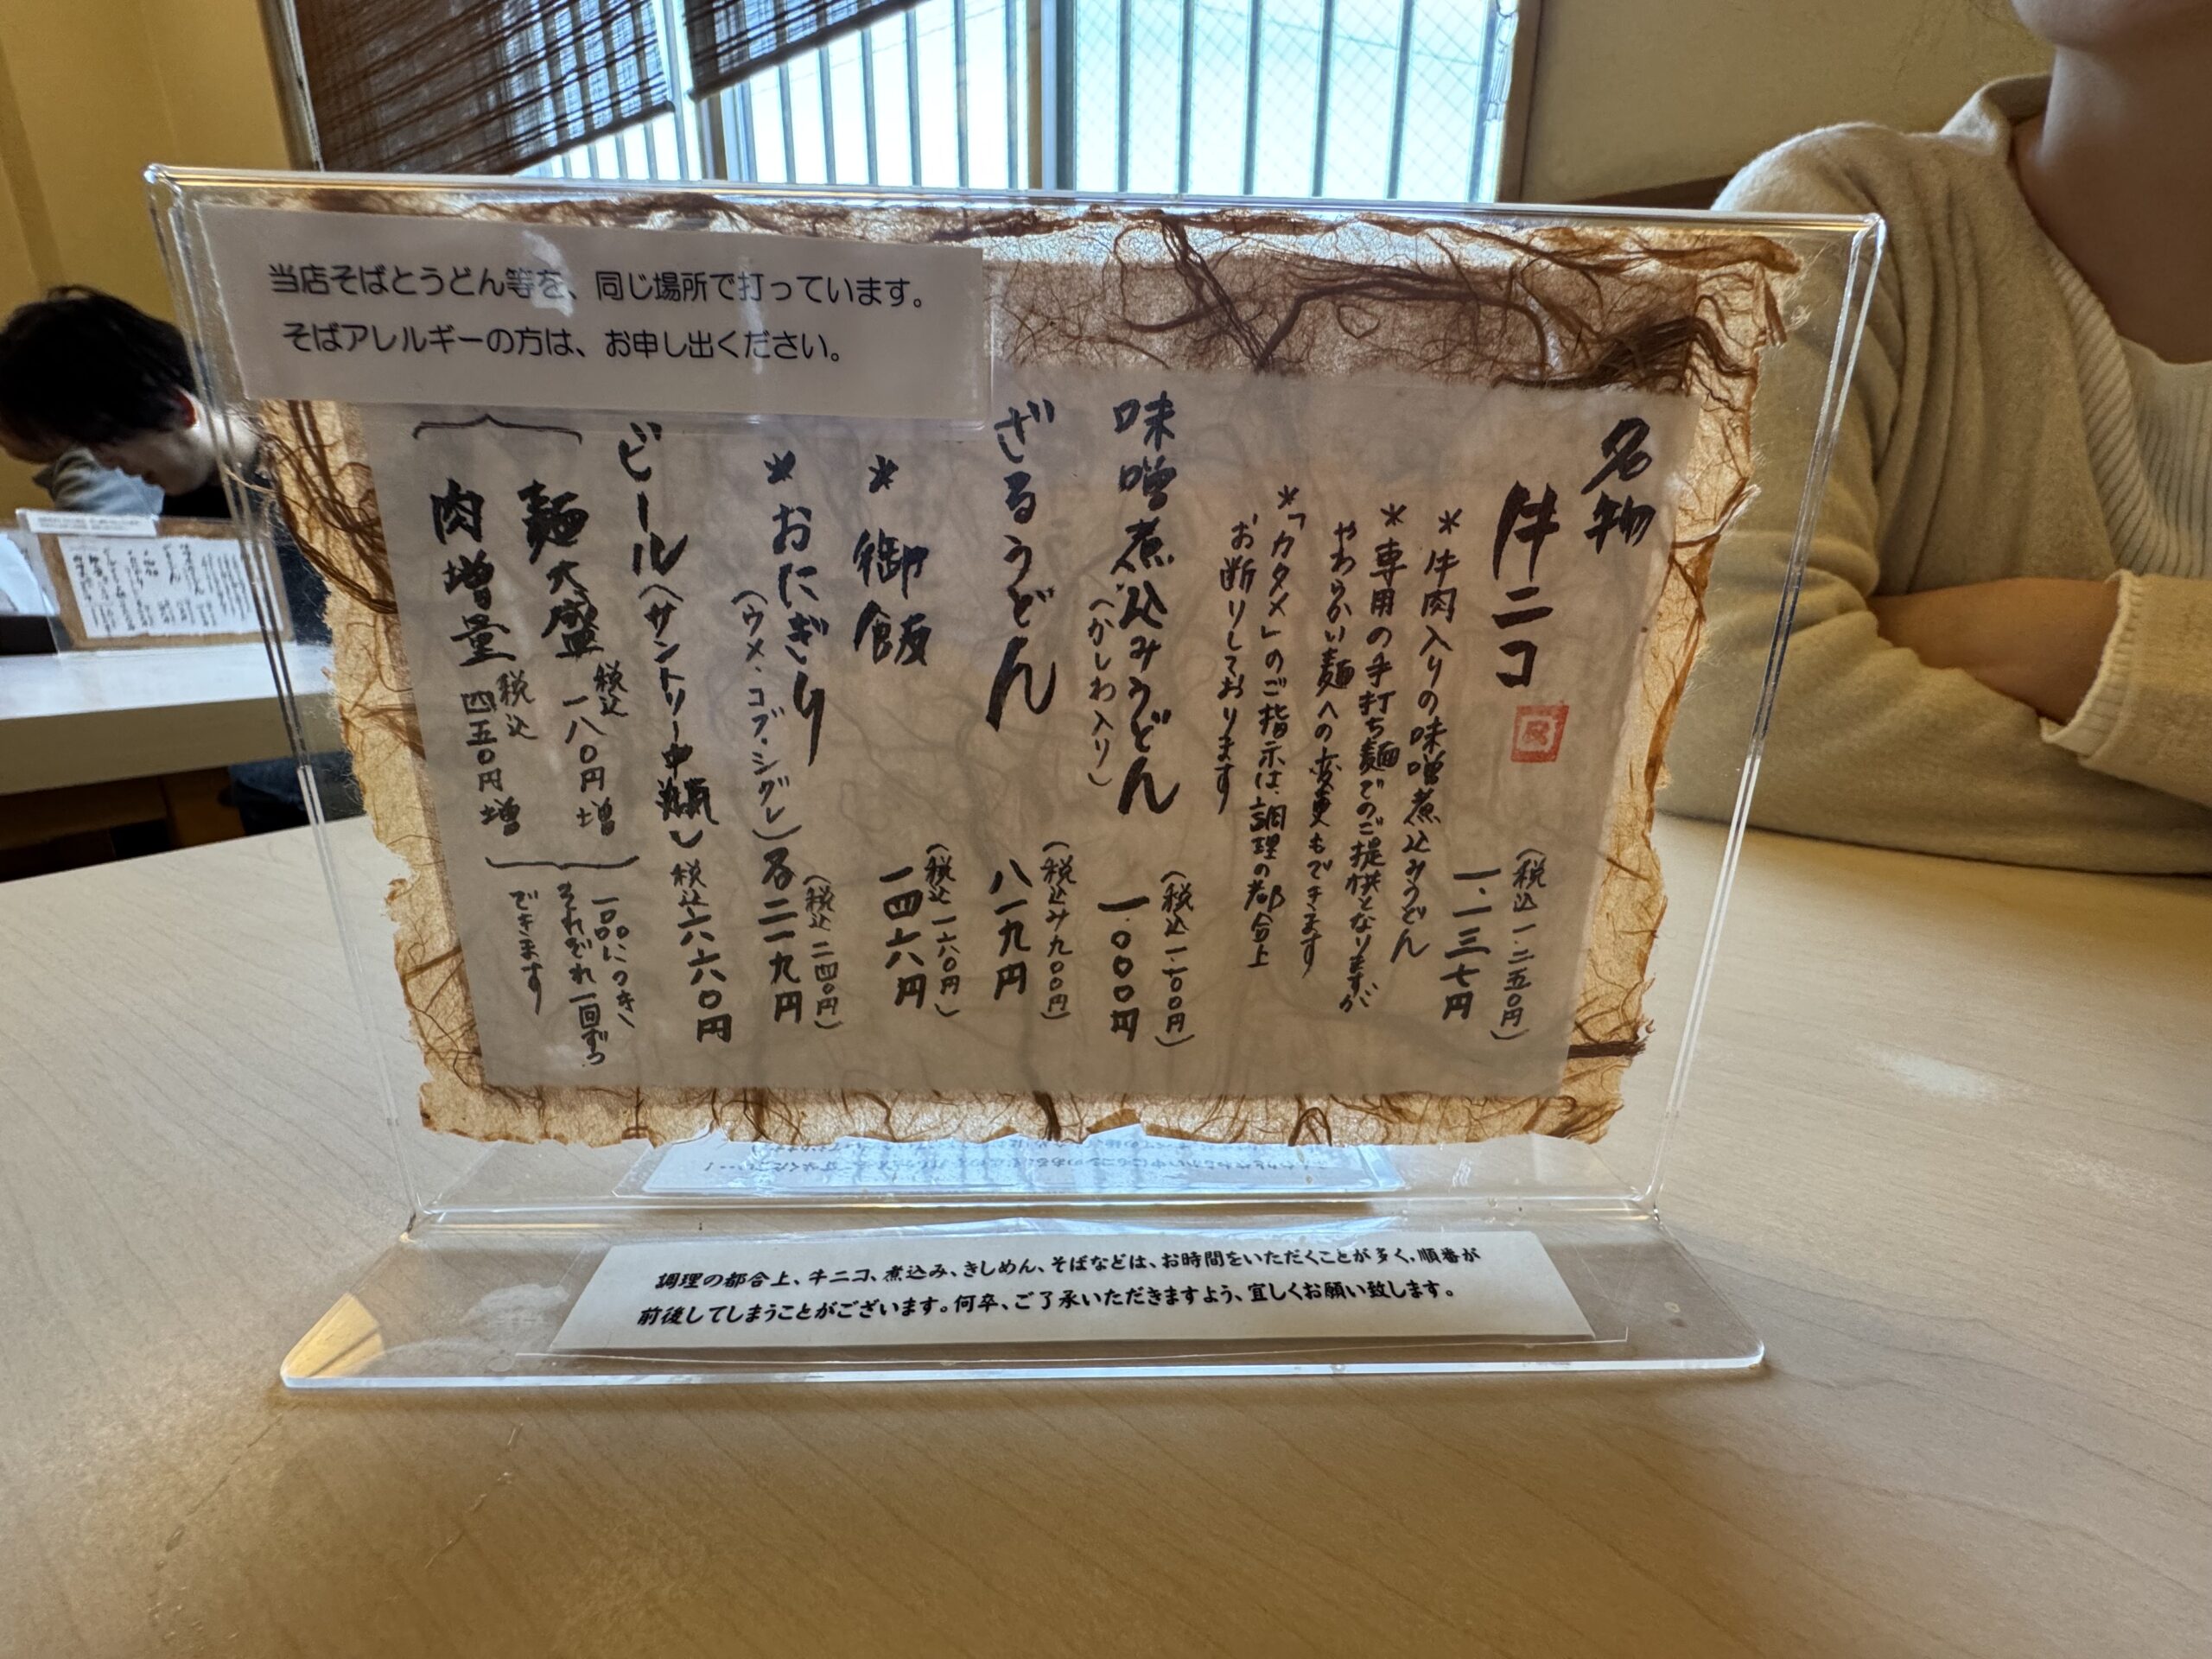 当店そばとうどん等を、同じ場所で打っています。
そばアレルギーの方は、お申し出ください。
名物
牛ニコ
(税込一、二五〇円)
一、一三七円
*牛肉入りの味噌煮込みうどん
*専用の手打ち麺でのご提供となりますが
やわらかい麺への変更もできます
*「カタメ」のご指示は、調理の都合上
お断りしております
味噌煮込みうどん
(かしわ入り)
(税込一、一〇〇円)
一、〇〇〇円
ざるうどん
(税込み九〇〇円)
八一九円
*御飯
(税込一六〇円)
一四六円
*おにぎり
(ウメ・コブ・シグレ)
(税込二四〇円)
各二一九円
ビール(サントリー中瓶)
税込六六〇円
麺大盛
税込
一八〇円増
肉増量
税込
四五〇円増
一品につき、
それぞれ一回ずつ
できます
調理の都合上、牛ニコ、煮込み、きしめん、そばなどは、お時間をいただくことが多く、順番が
前後してしまうことがございます。何卒、ご了承いただきますよう、宜しくお願い致します。